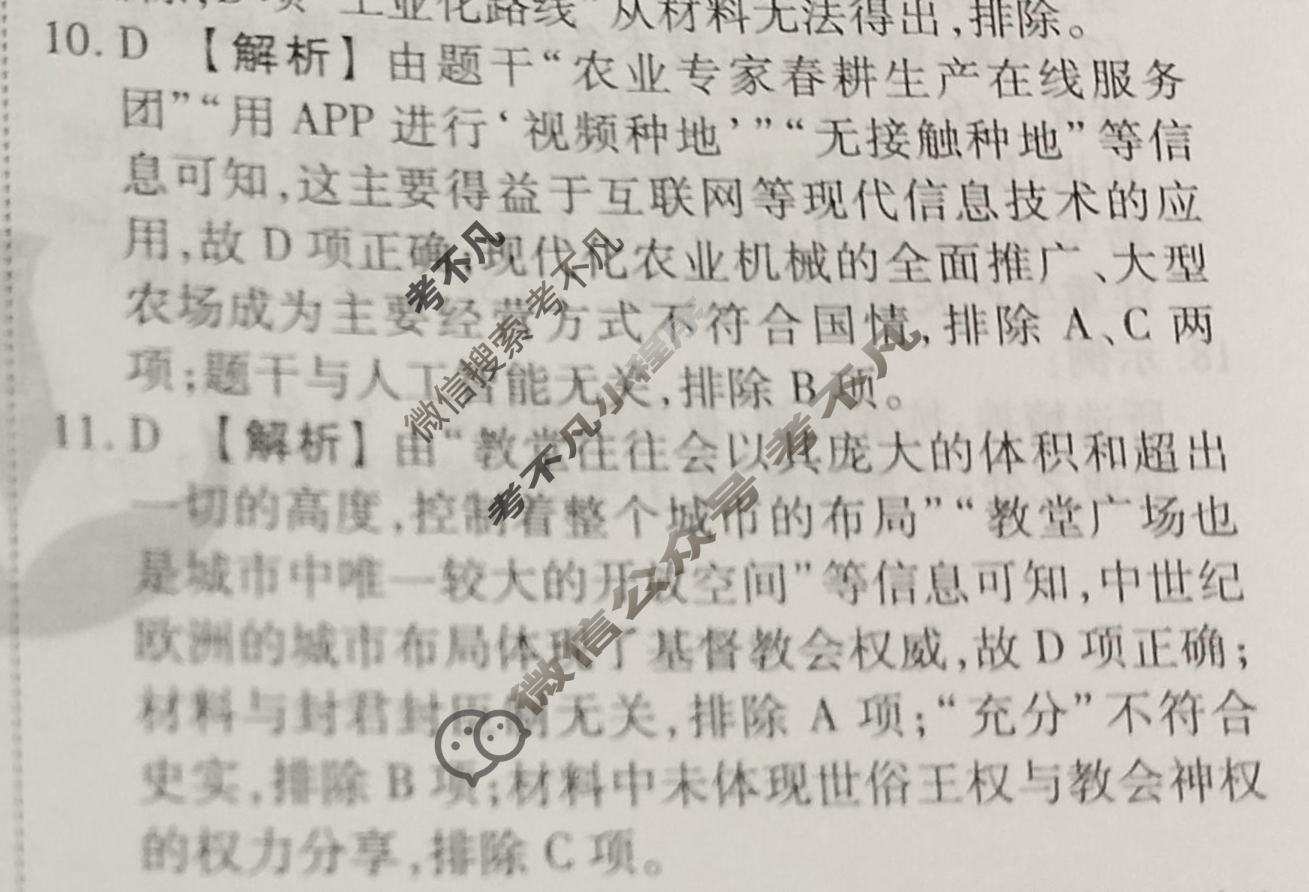 “工业化路线”从材料无法得出,排除。
10. D 【解析】由题干“农业专家春耕生产在线服务
团”“用 APP 进行‘视频种地’”“无接触种地”等信
息可知,这主要得益于互联网等现代信息技术的应
用,故 D 项正确;现代化农业机械的全面推广、大型
农场成为主要经营方式不符合国情,排除 A、C 两
项;题干与人工智能无关,排除 B 项。
11. D 【解析】由“教堂往往会以其庞大的体积和超出
一切的高度,控制着整个城市的布局”“教堂广场也
是城市中唯一较大的开放空间”等信息可知,中世纪
欧洲的城市布局体现了基督教会权威,故 D 项正确;
材料与封君封臣制无关,排除 A 项;“充分”不符合
史实,排除 B 项;材料中未体现世俗王权与教会神权
的权力分享,排除 C 项。
考不凡
微信搜索考不凡
考不凡小程序
微信公众号 考不凡
18. 示例: